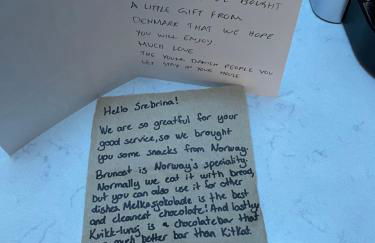 BOUGHT
A LITTLE GIFT FROM
DENMARK THAT WE HOPE
YOU WILL ENJOY.
MUCH LOVE
THE YOUNG DANISH PEOPLE YOU
LET STAY IN YOUR HOUSE
Hello Srebrina!
We are so greatful for your
good service, so we brought
you some snacks from Norway.
Brunost is Norway's speciality.
Normally we eat it with bread,
but you can also use it for other
dishes. Melkesjokolade is the best
and cleanest chocolate! And lastly
Kvikk-lunsj is a chocolatebar that
much better bar than KitKat.